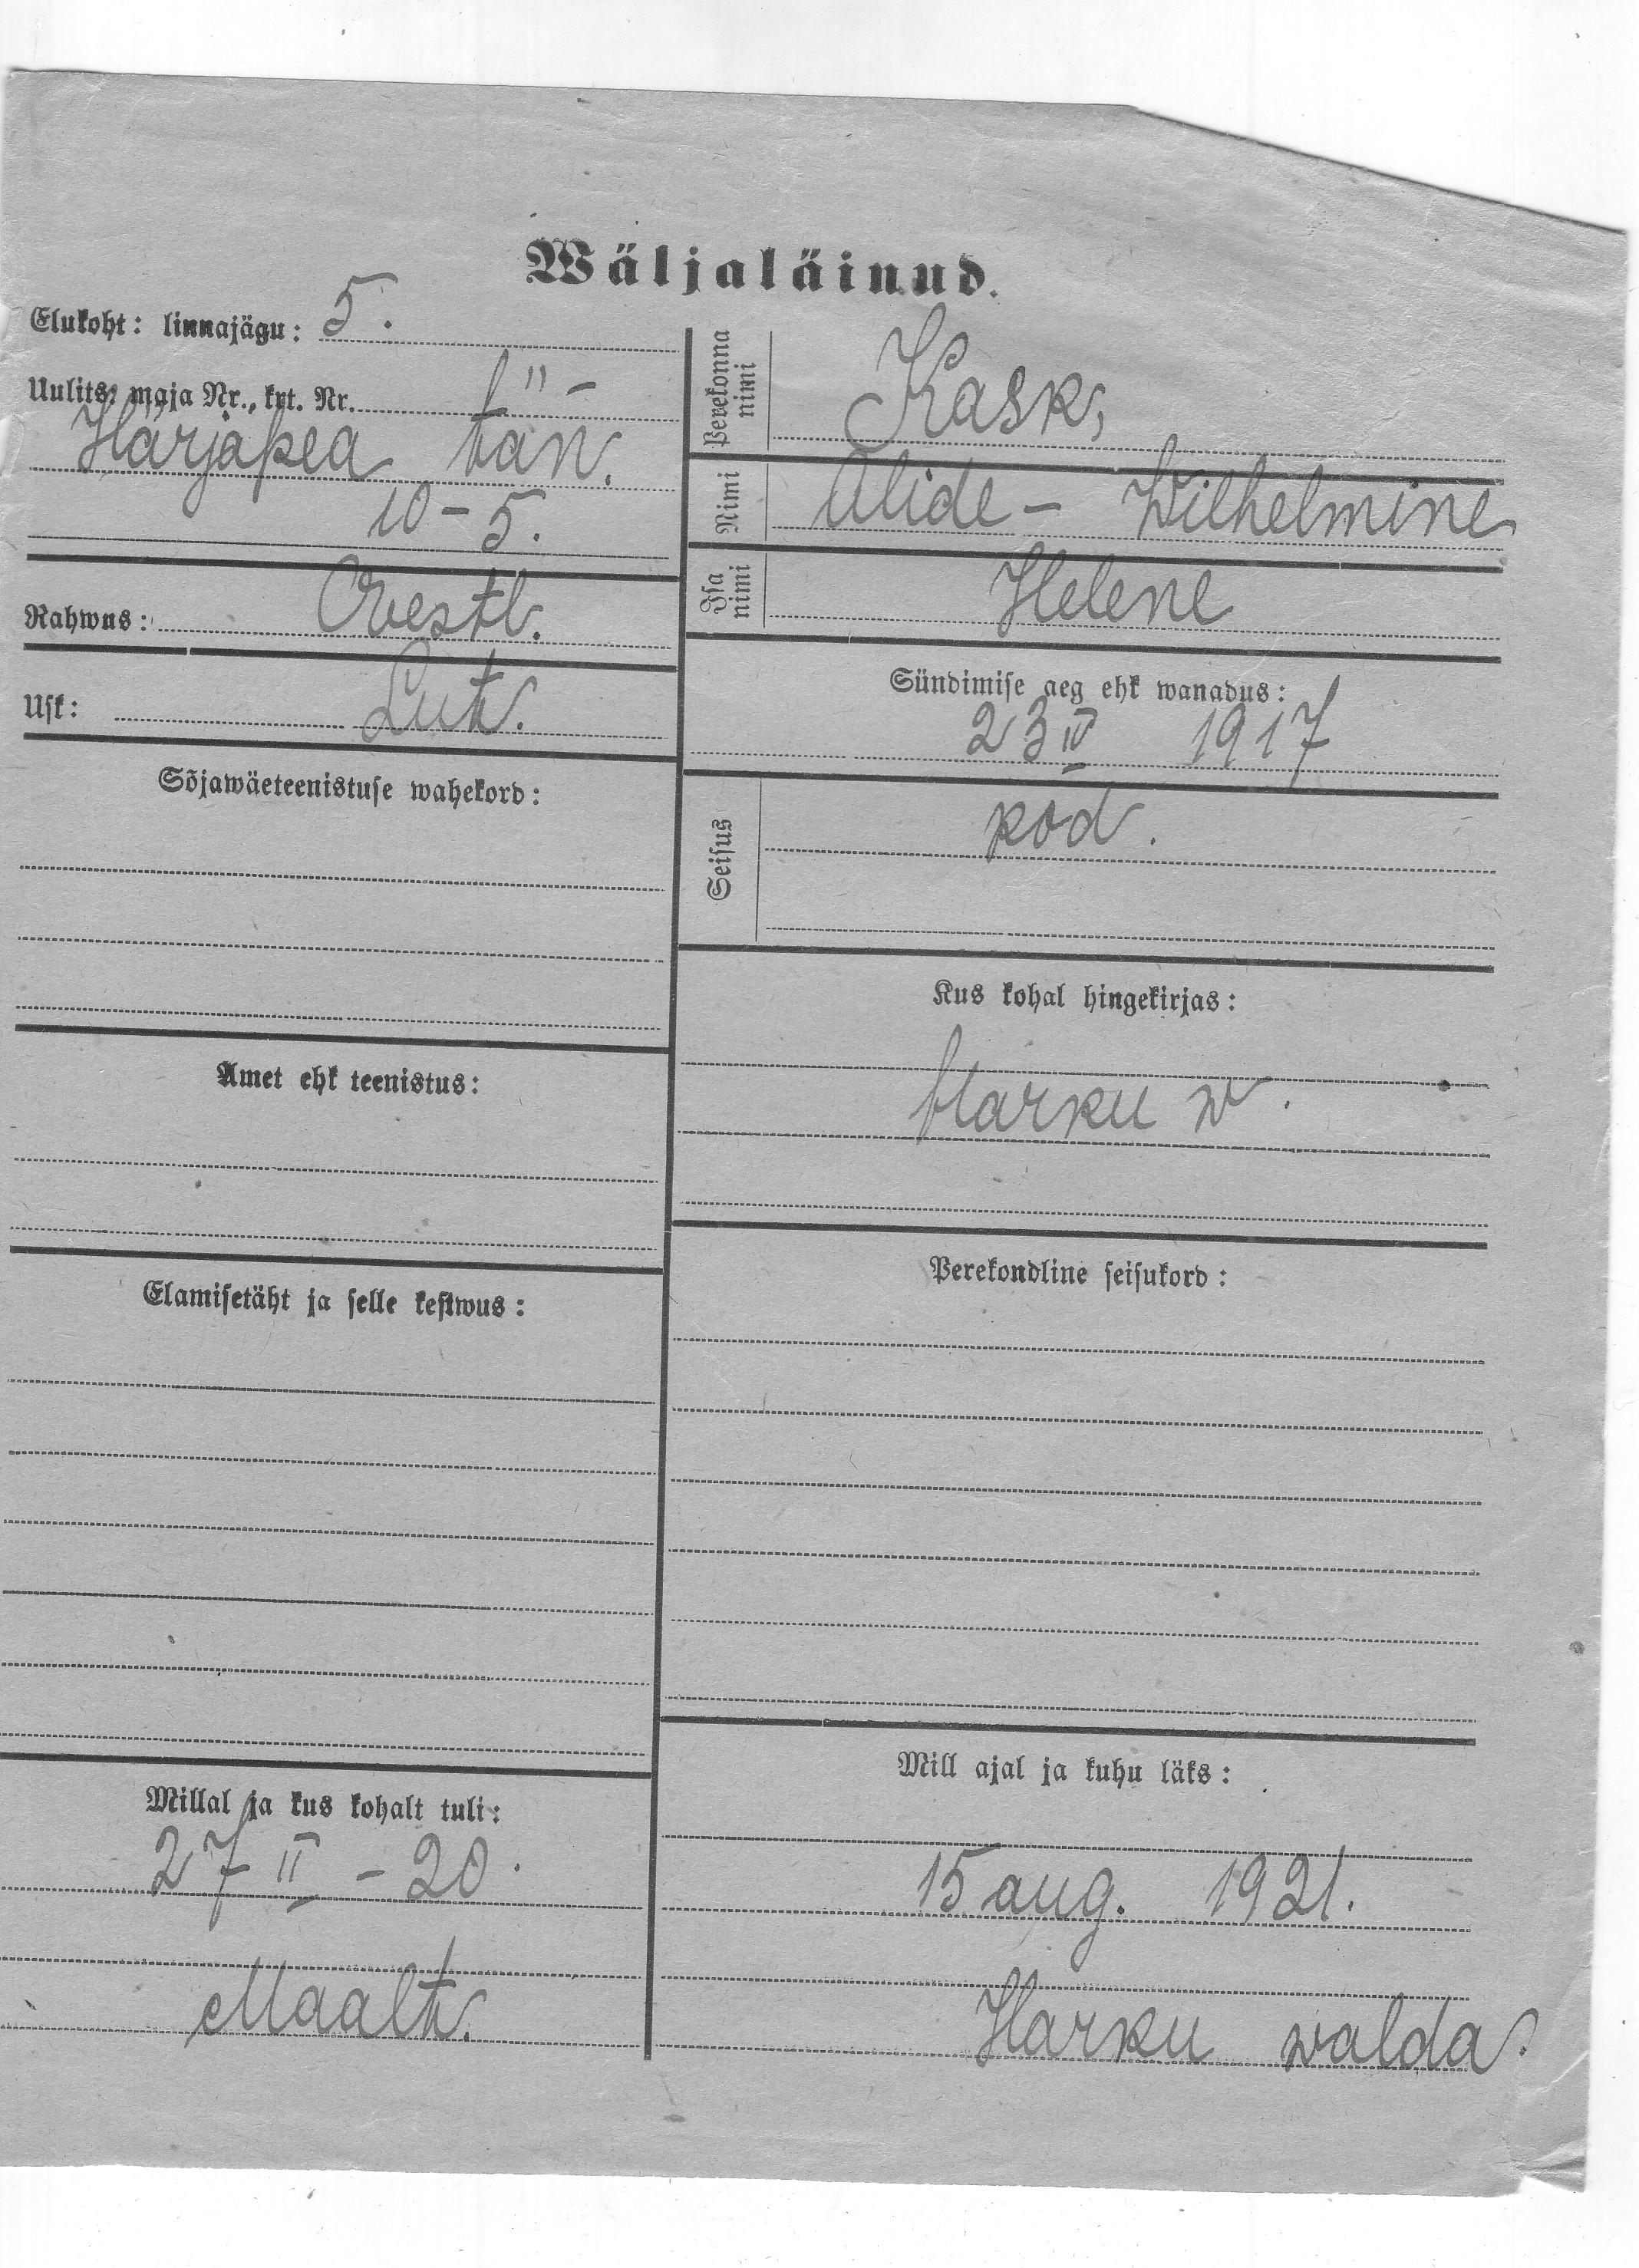 Wäljaläinud.
Elukoht: linnajägu: 5.
Uulits, maja Nr., krt. Nr.
Härjapea tän.
10-5.
Rahwus: Eestl.
Usk: Lut.
Sõjawäeteenistuse wahekord:
Amet ehk teenistus:
Elamisetäht ja selle kestwus:
Millal ja kus kohalt tuli:
27 II - 20.
Maalt.
Perekonna nimi Kask,
Nimi Alide - Wilhelmine
Isa nimi Helene
Sündimise aeg ehk wanadus:
23 IV 1917
Seisus kod.
Kus kohal hingekirjas:
Harku w.
Perekondline seisukord:
Mill ajal ja kuhu läks:
15 aug. 1921.
Harku walda.